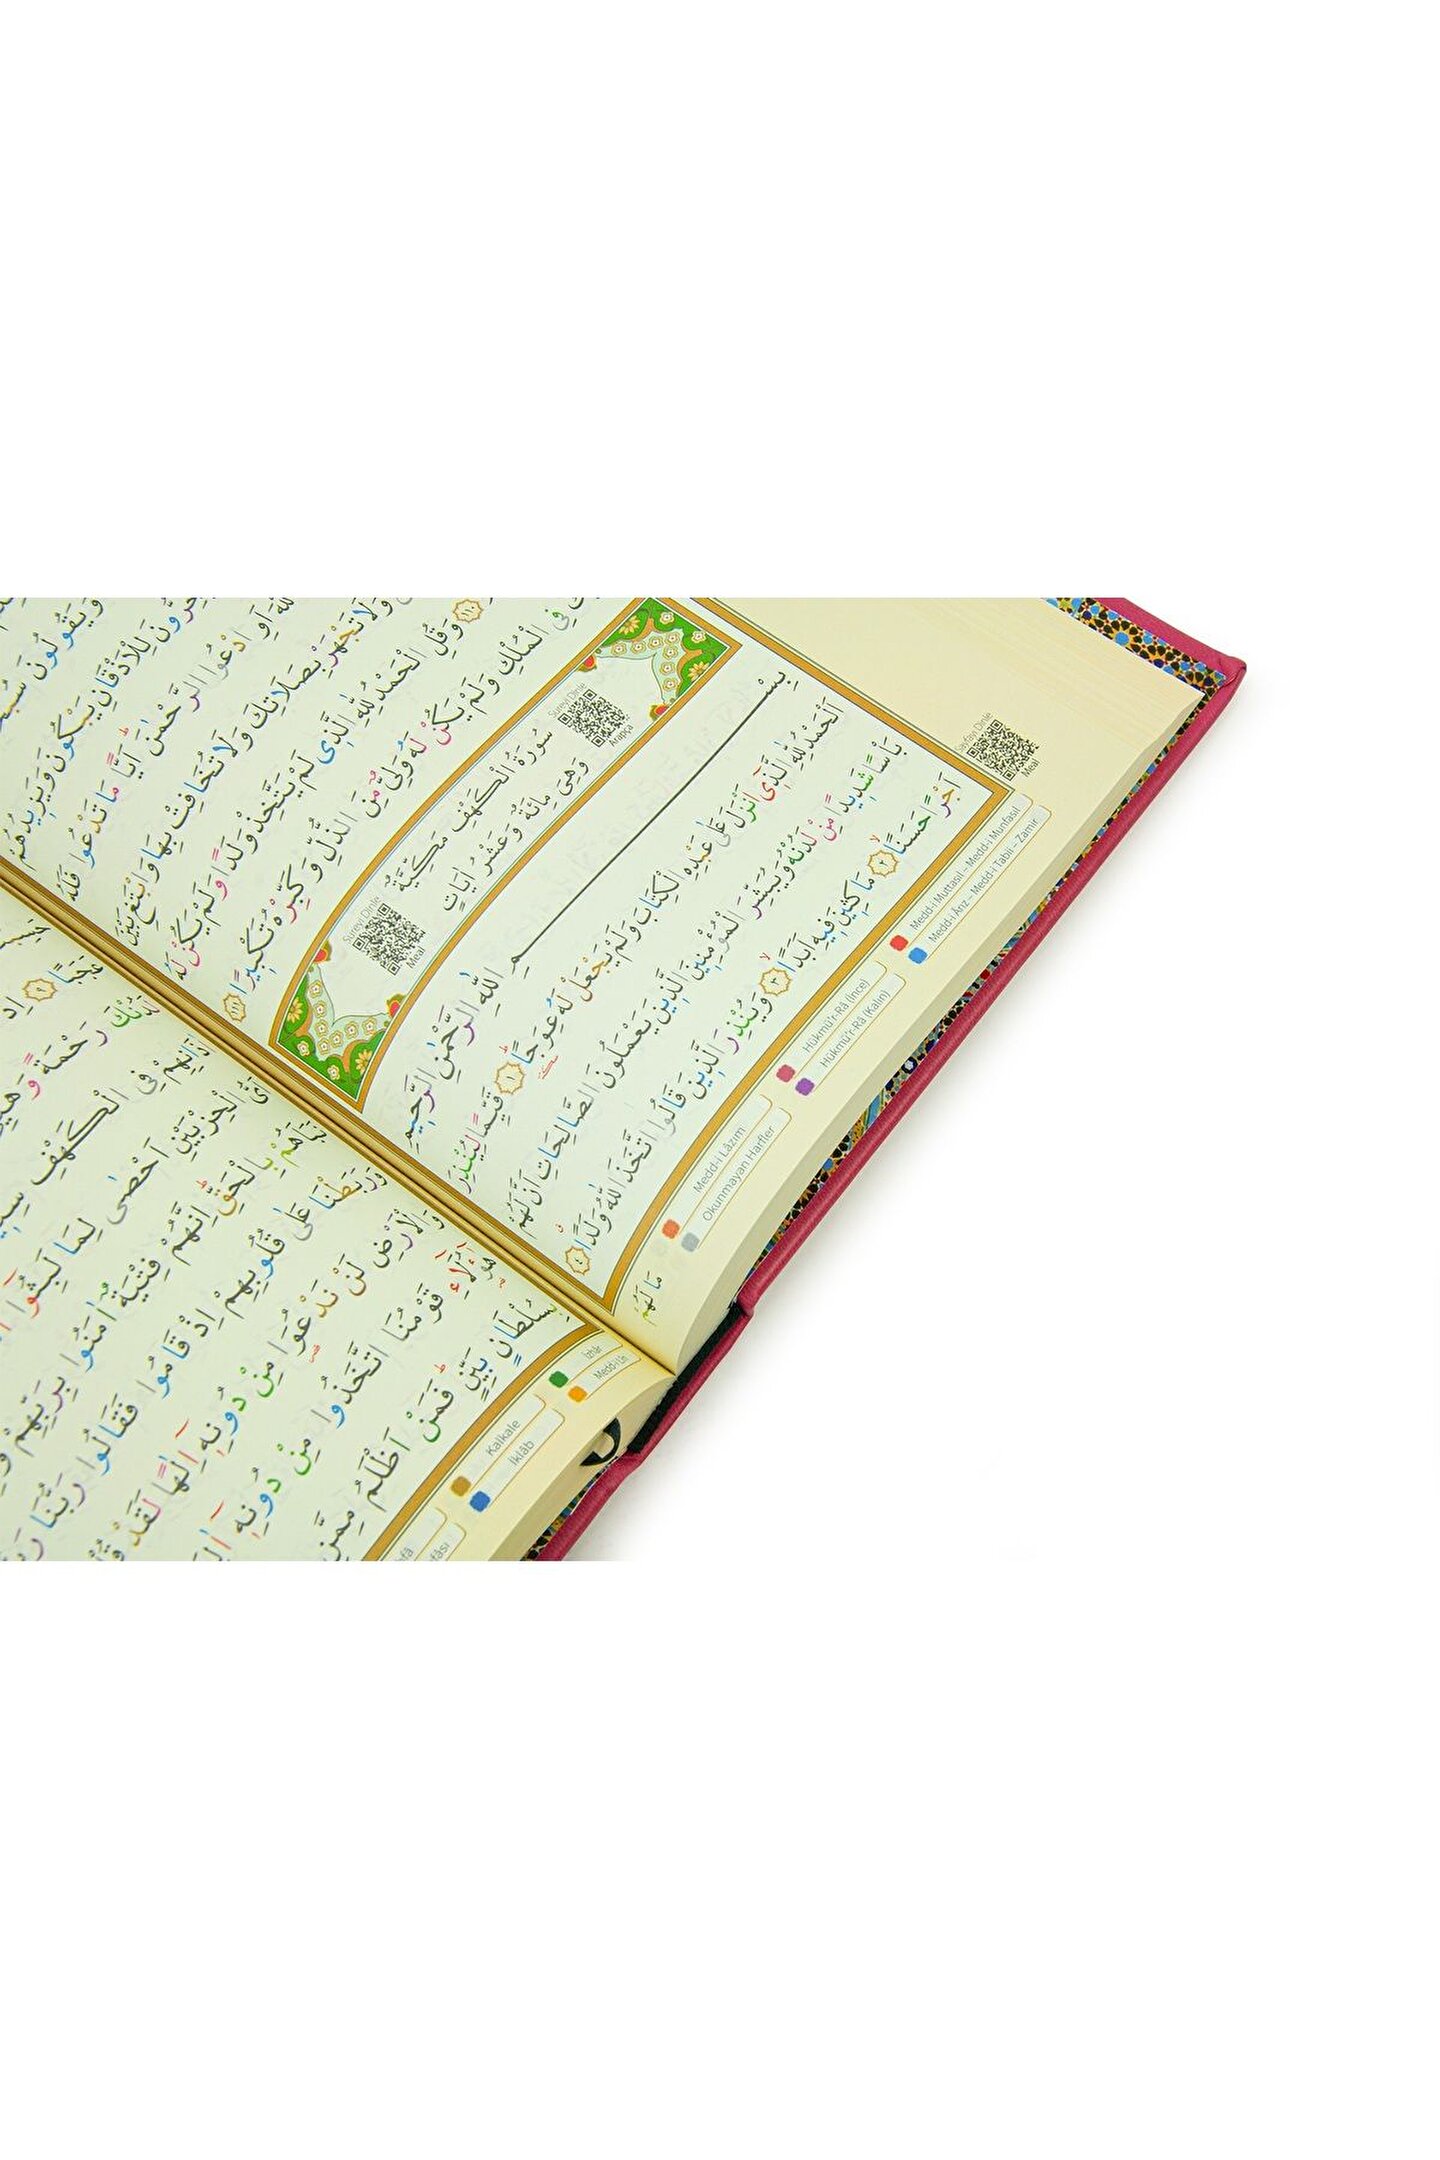 وَيَقُولُونَ
لِلْاَذْقَانِ يَبْكُونَ وَيَزِيدُهُمْ
اَوِ ادْعُوا الرَّحْمٰنَ اَيًّا مَا تَدْعُوا فَلَهُ
وَلَا تَجْهَرْ بِصَلَاتِكَ وَلَا تُخَافِتْ بِهَا وَابْتَغِ بَيْنَ
﴿١١٠﴾ وَقُلِ الْحَمْدُ لِلّٰهِ الَّذٖى لَمْ يَتَّخِذْ وَلَدًا وَلَمْ يَكُنْ لَهُ
فِى الْمُلْكِ وَلَمْ يَكُنْ لَهُ وَلِىٌّ مِنَ الذُّلِّ وَكَبِّرْهُ تَكْبٖيرًا ﴿١١١﴾
Sureyi Dinle
Arapça
سُورَةُ الْكَهْفِ مَكِّيَّةٌ
وَهِىَ مِائَةٌ وَعَشْرُ اٰيَاتٍ
Sureyi Dinle
Meal
بِسْمِ اللّٰهِ الرَّحْمٰنِ الرَّحٖيمِ
اَلْحَمْدُ لِلّٰهِ الَّذٖٓى اَنْزَلَ عَلٰى عَبْدِهِ الْكِتَابَ وَلَمْ يَجْعَلْ لَهُ عِوَجًا ﴿١﴾ قَيِّمًا لِيُنْذِرَ
بَاْسًا شَدٖيدًا مِنْ لَدُنْهُ وَيُبَشِّرَ الْمُؤْمِنٖينَ الَّذٖينَ يَعْمَلُونَ الصَّالِحَاتِ اَنَّ لَهُمْ
اَجْرًا حَسَنًا ﴿٢﴾ مَاكِثٖينَ فٖيهِ اَبَدًا ﴿٣﴾ وَيُنْذِرَ الَّذٖينَ قَالُوا اتَّخَذَ اللّٰهُ وَلَدًا ﴿٤﴾
مَا لَهُمْ
Sayfayı Dinle
Meal
Medd-i Muttasıl – Medd-i Munfasıl
Medd-i Ârız – Medd-i Tabii – Zamir
Hükmü'r-Râ (İnce)
Hükmü'r-Râ (Kalın)
Medd-i Lâzım
Okunmayan Harfler
عَجَبًا ﴿٩﴾ اِذْ
رَحْمَةً وَهَيِّئْ
فِى الْكَهْفِ
الْحِزْبَيْنِ اَحْصٰى لِمَا لَبِثُٓوا
بِالْحَقِّ اِنَّهُمْ فِتْيَةٌ اٰمَنُوا بِرَبِّهِمْ
وَرَبَطْنَا عَلٰى قُلُوبِهِمْ اِذْ قَامُوا فَقَالُوا رَبُّنَا
وَالْاَرْضِ لَنْ نَدْعُوَا مِنْ دُونِهٖٓ اِلٰهًا لَقَدْ
هٰٓؤُلَٓاءِ قَوْمُنَا اتَّخَذُوا مِنْ دُونِهٖٓ
بِسُلْطَانٍ بَيِّنٍ فَمَنْ اَظْلَمُ مِمَّنِ
İzhâr
Medd-i Lîn
Kalkale
İklâb